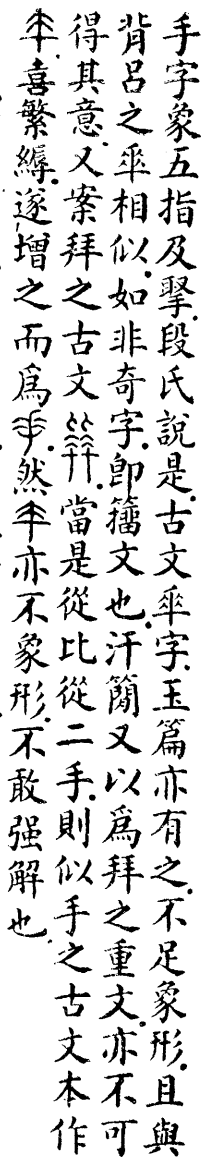 手字象五指及掔段氏說是古文𠦬字玉篇亦有之不足象形且與
背呂之𠦬相似如非奇字卽籀文也汗簡又以爲拜之重文亦不可
得其意又案拜之古文當是從比從二手則似手之古文本作
喜繁縟遂增之而爲然亦不象形不敢强解也